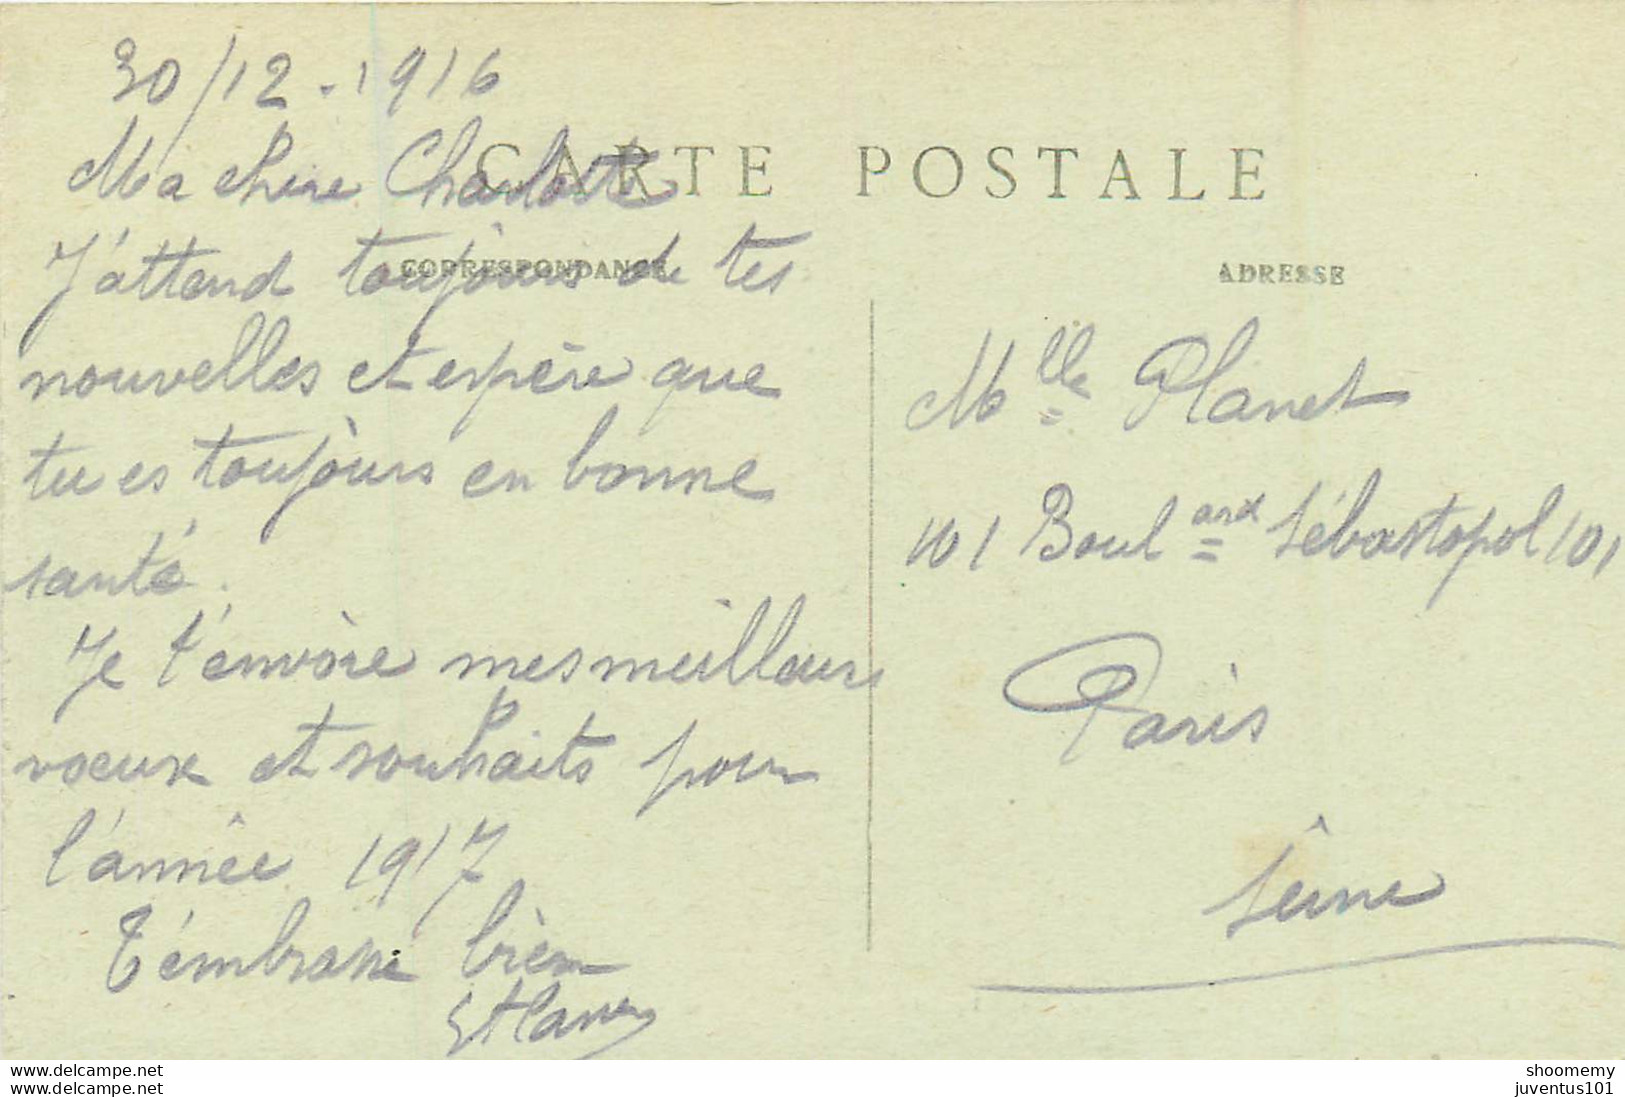 30/12.1916
Ma chère Charlotte
CARTE POSTALE
J'attend toujours de tes
CORRESPONDANCE
nouvelles et espère que
tu es toujours en bonne
santé.
Je t'envoie mes meilleurs
voeux et souhaits pour
l'année 1917
T'embrasse bien
ADRESSE
Mlle Planet
101 Boulard Sébastopol 101
Paris
Seine
www.delcampe.net
shoomemy
www.delcampe.net
juventus101